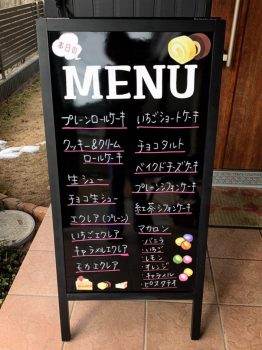 本日の
MENU
プレーンロールケーキ
クッキー&クリーム
ロールケーキ
生シュー
チョコ生シュー
エクレア(プレーン)
いちごエクレア
キャラメルエクレア
モカエクレア
いちごショートケーキ
チョコタルト
ベイクドチーズケーキ
プレーンシフォンケーキ
紅茶シフォンケーキ
マカロン
・バニラ
・いちご
・レモン
・オレンジ
・キャラメル
・ピスタチオ